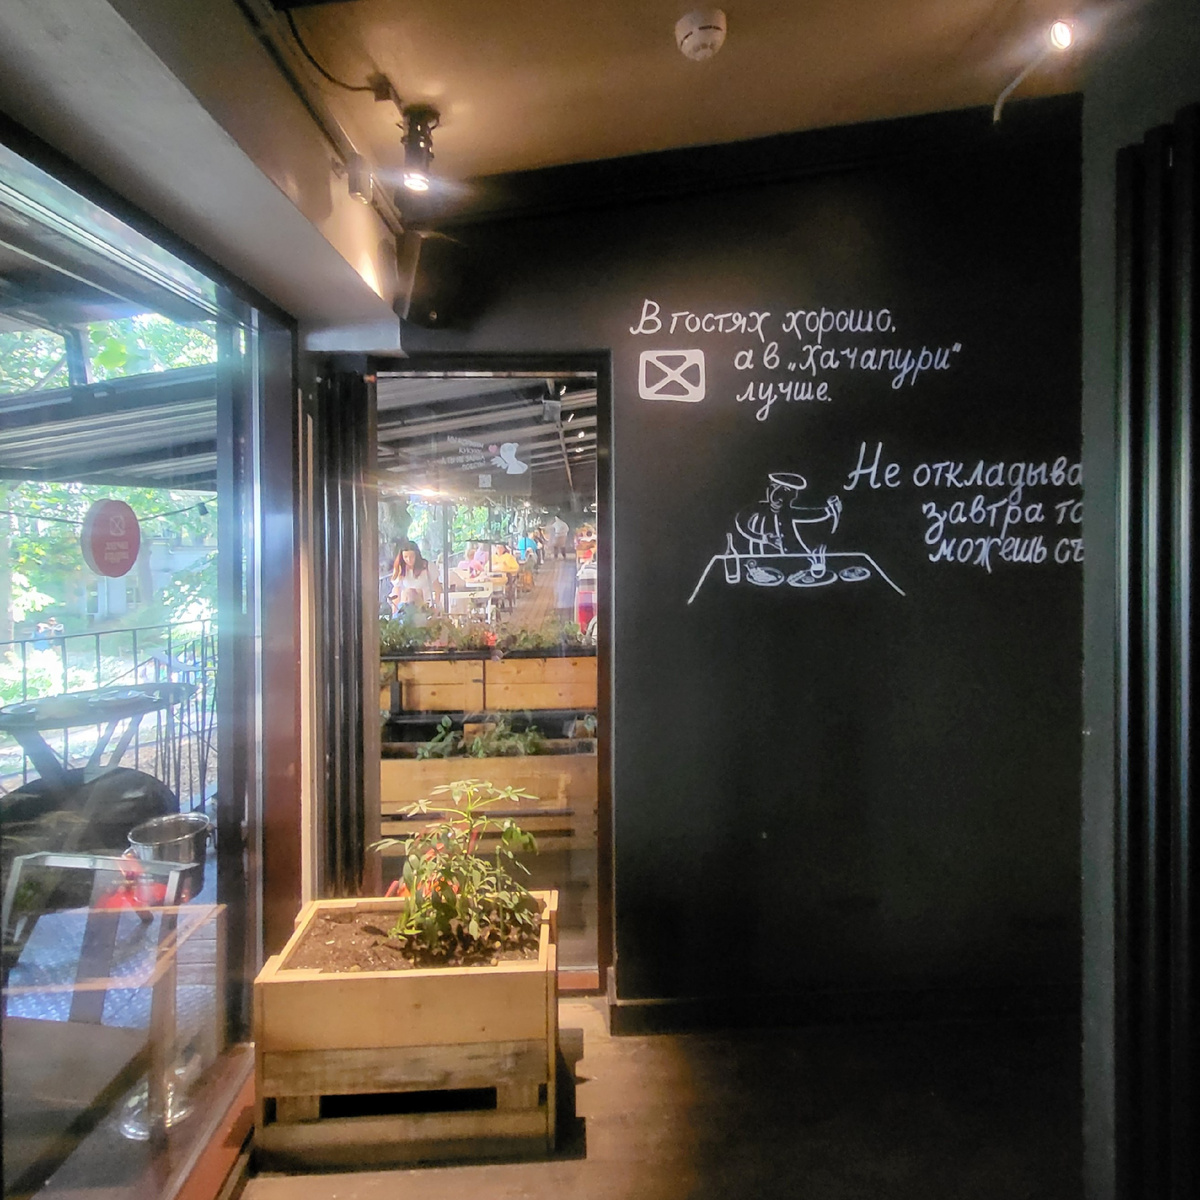 В гостях хорошо.
а в „Хачапури“
лучше.
Не откладыва
завтра то
можешь съ